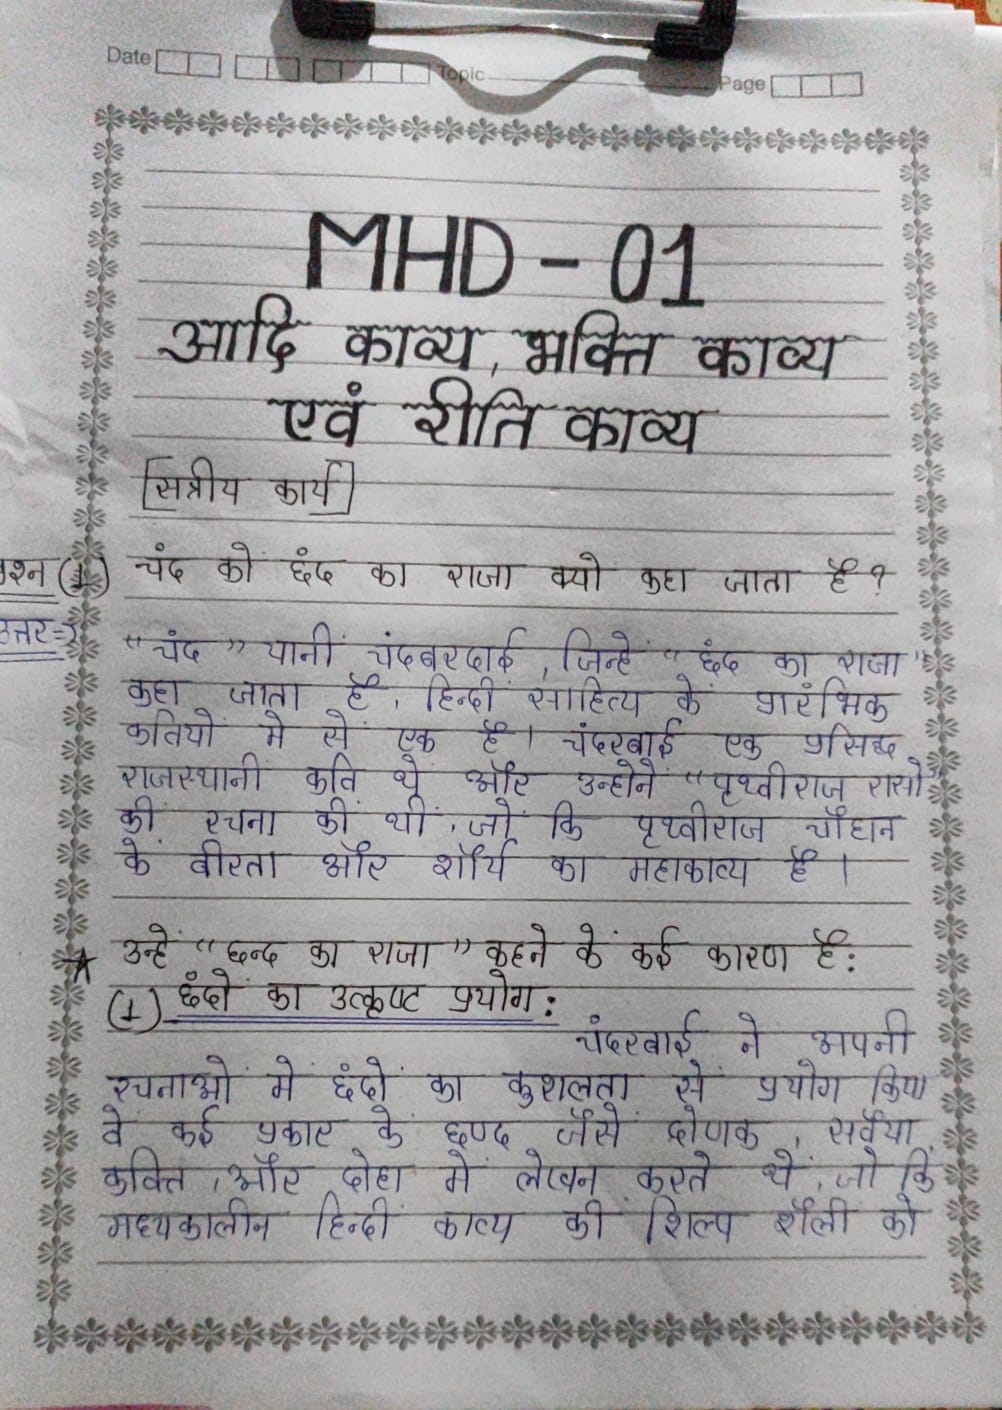 Date Topic Page
MHD - 01
आदि काव्य, भक्ति काव्य
एवं रीति काव्य
[सत्रीय कार्य]
प्रश्न (1) चंद को छंद का राजा क्यो कहा जाता है?
उत्तर⇒ "चंद" यानी चंदबरदाई, जिन्हे "छंद का राजा"
कहा जाता है, हिन्दी साहित्य के प्रारंभिक
कवियो मे से एक है। चंदरबाई एक प्रसिद्ध
राजस्थानी कवि थे और उन्होने "पृथ्वीराज रासो"
की रचना की थी, जो कि पृथ्वीराज चौहान
के वीरता और शौर्य का महाकाव्य है।
★ उन्हे "छन्द का राजा" कहने के कई कारण है:
(1) छंदो का उत्कृष्ट प्रयोग:
चंदरबाई ने अपनी
रचनाओ मे छंदो का कुशलता से प्रयोग किया
वे कई प्रकार के छण्द जैसे दोणक, सर्वैया,
कवित, और दोहा मे लेखन करते थे, जो कि
मध्यकालीन हिन्दी काव्य की शिल्प शैली को